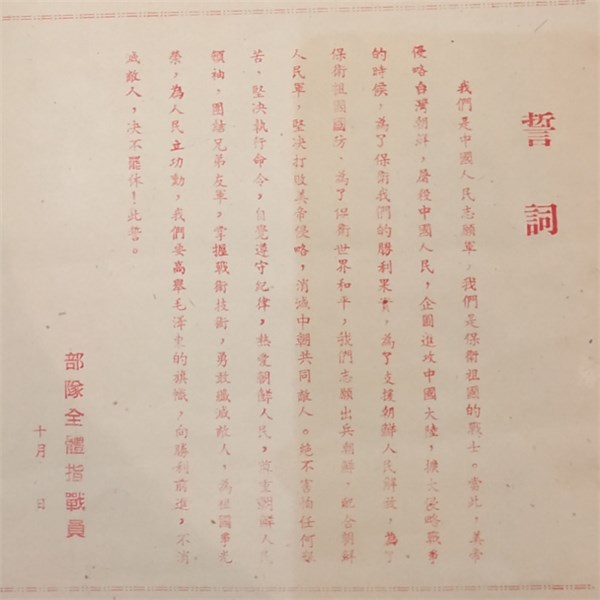 誓詞
我們是中國人民志願軍，我們是保衛祖國的戰士。當此，美帝
侵略台灣朝鮮，屠殺中國人民，企圖進攻中國大陸，擴大侵略戰事
的時侯，為了保衛我們的勝利果實，為了支援朝鮮人民解放，為了
保衛祖國國防、為了保衛世界和平，我們志願出兵朝鮮，配合朝鮮
人民軍，堅决打敗美帝侵略，消滅中朝共同敵人。絕不害怕任何艱
苦，堅决執行命令，自覺遵守紀律，熱愛朝鮮人民，尊重朝鮮人民
領袖，團結兄弟友軍，掌握戰術技術，勇敢殲滅敵人，為祖國爭光
榮，為人民立功勳，我們要高舉毛澤東的旗幟，向勝利前進，不消
滅敵人，决不罷休！此誓。
部隊全體指戰員
十月　日